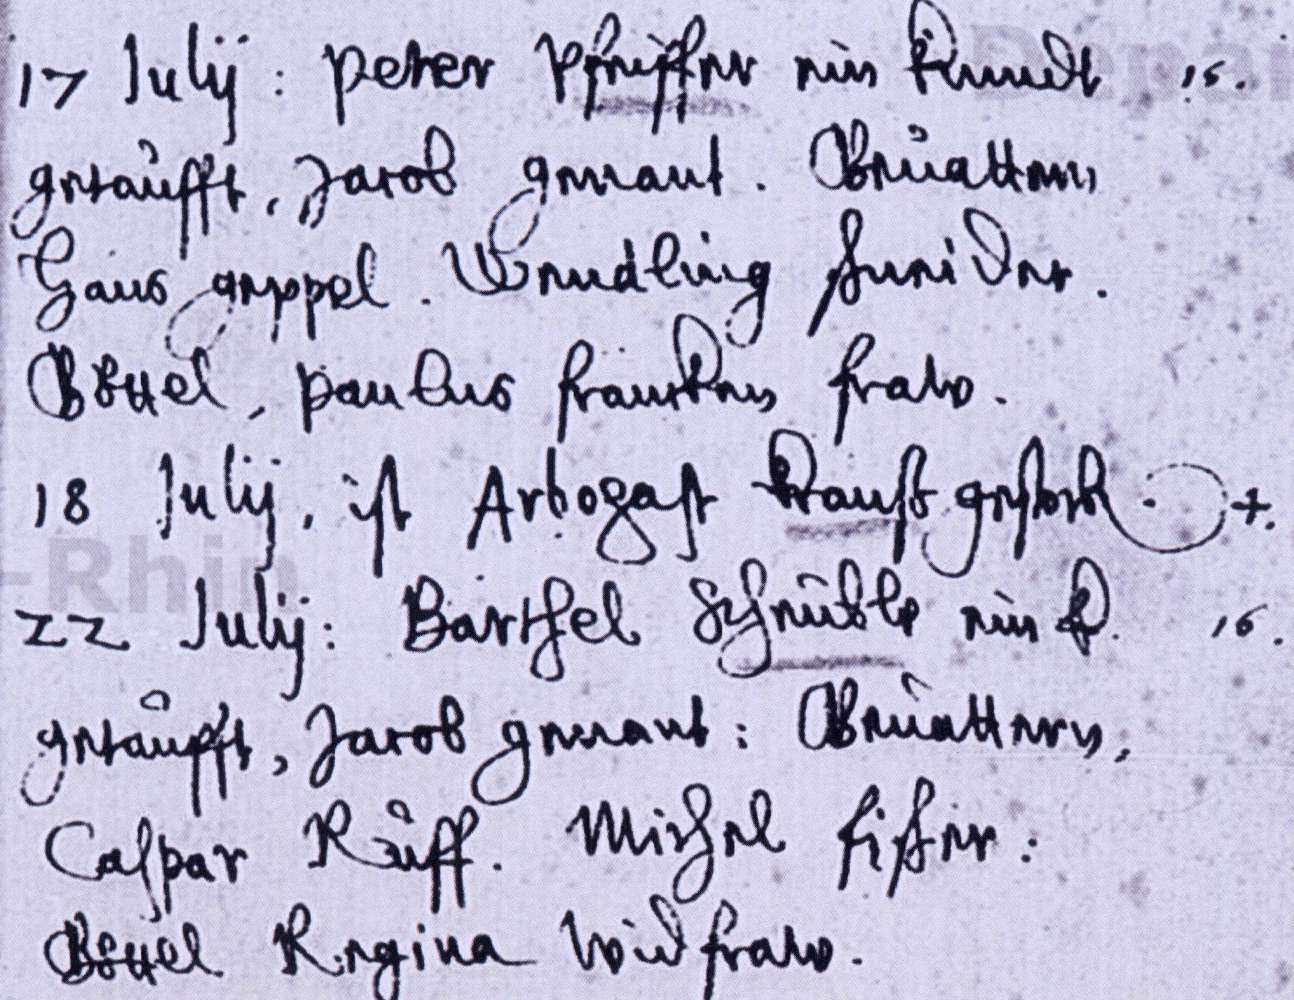 17 Julij : Peter Pfeiffer ein kindt 15.
getaufft, Jacob genant. Gevattern
Hans geppel. Wendling Sneider.
Göttel, Paulus francken fraw.
18 Julij, ist Arbogast gestorb. +.
22 Julij: Barthel Scheüble ein k. 16.
getaufft, Jacob genant: Gevattern,
Caspar Rüff. Michel fischer:
Göttel Regina widfraw.